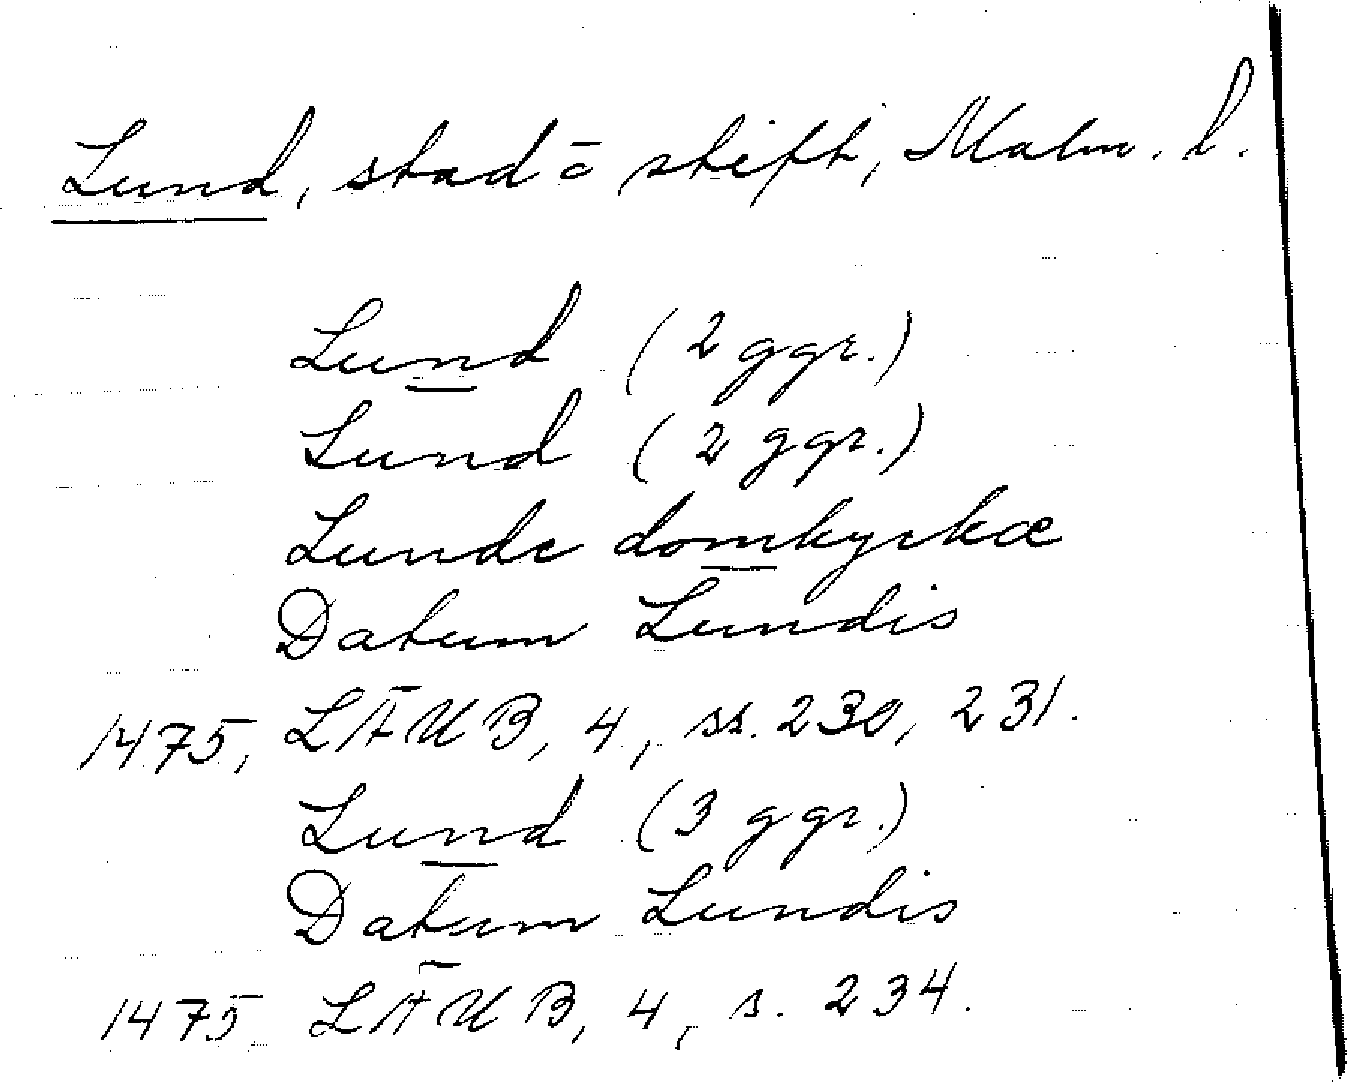 Lund, stad o̅ stift, Malm. l.
Lund (2 ggr.)
Lund (2 ggr.)
Lunde domkyrkæ
Datum Lundis
1475, LÄUB, 4, ss. 230, 231.
Lund (3 ggr.)
Datum Lundis
1475, LÄUB, 4, s. 234.